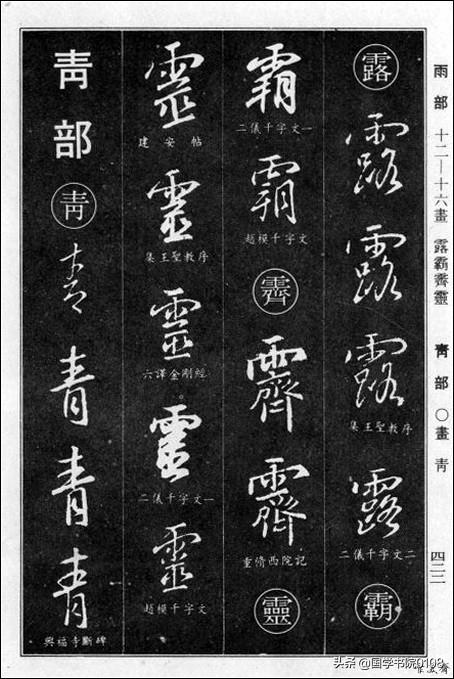 雨部 十二—十六畫 露霸霽靈 青部 〇畫 青 四二二
露
露
露
露
集王聖教序
露
二儀千字文二
霸
霸
二儀千字文一
霸
趙模千字文
霽
霽
霽
重脩西院記
靈
靈
建安帖
靈
集王聖教序
靈
六譯金剛經
靈
二儀千字文一
靈
趙模千字文
青部
青
青
青
青
青
興福寺斷碑
头条 @国学书院0108